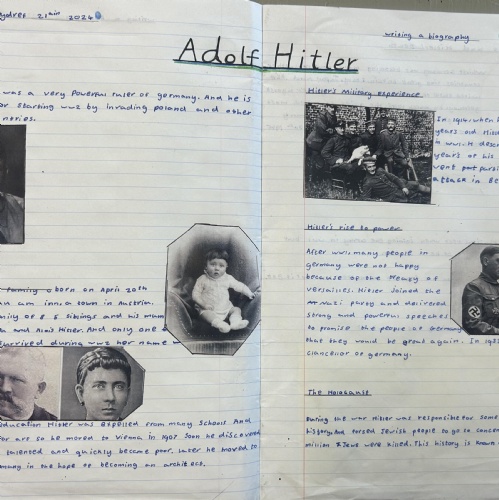 21ain 2024
writing a biography
Adolf Hitler
was a very Powerful ruler of germany. And he is
or starting ww2 by invading poland and other
ntries.
family born on April 20th
inn a town in Austria.
mily of 6 siblings and his mum
And only one
survived during ww2 her name
education Hitler was expelled from many Schools And
for art so he moved to Vienna in 1907 Soon he discovered
talented and quickly became poor. Later he moved to
many in the hope of becoming an architect.
Hitler's Military experience
In 1914, when h
years old
in ww1. H
years of his
attack in Be
Hitler's rise to power
After ww1, many people in
germany were not happy
because of the
versailles. Hitler Joined the
Nazi party and
strong and powerful speeches
to promise the people of Germany
that they would be great again. In
Chancellor of germany.
The Holocaust
During the war Hitler was responsible for some
history. And forsed Jewish people to go to concen
million Jews were killed. This history is known